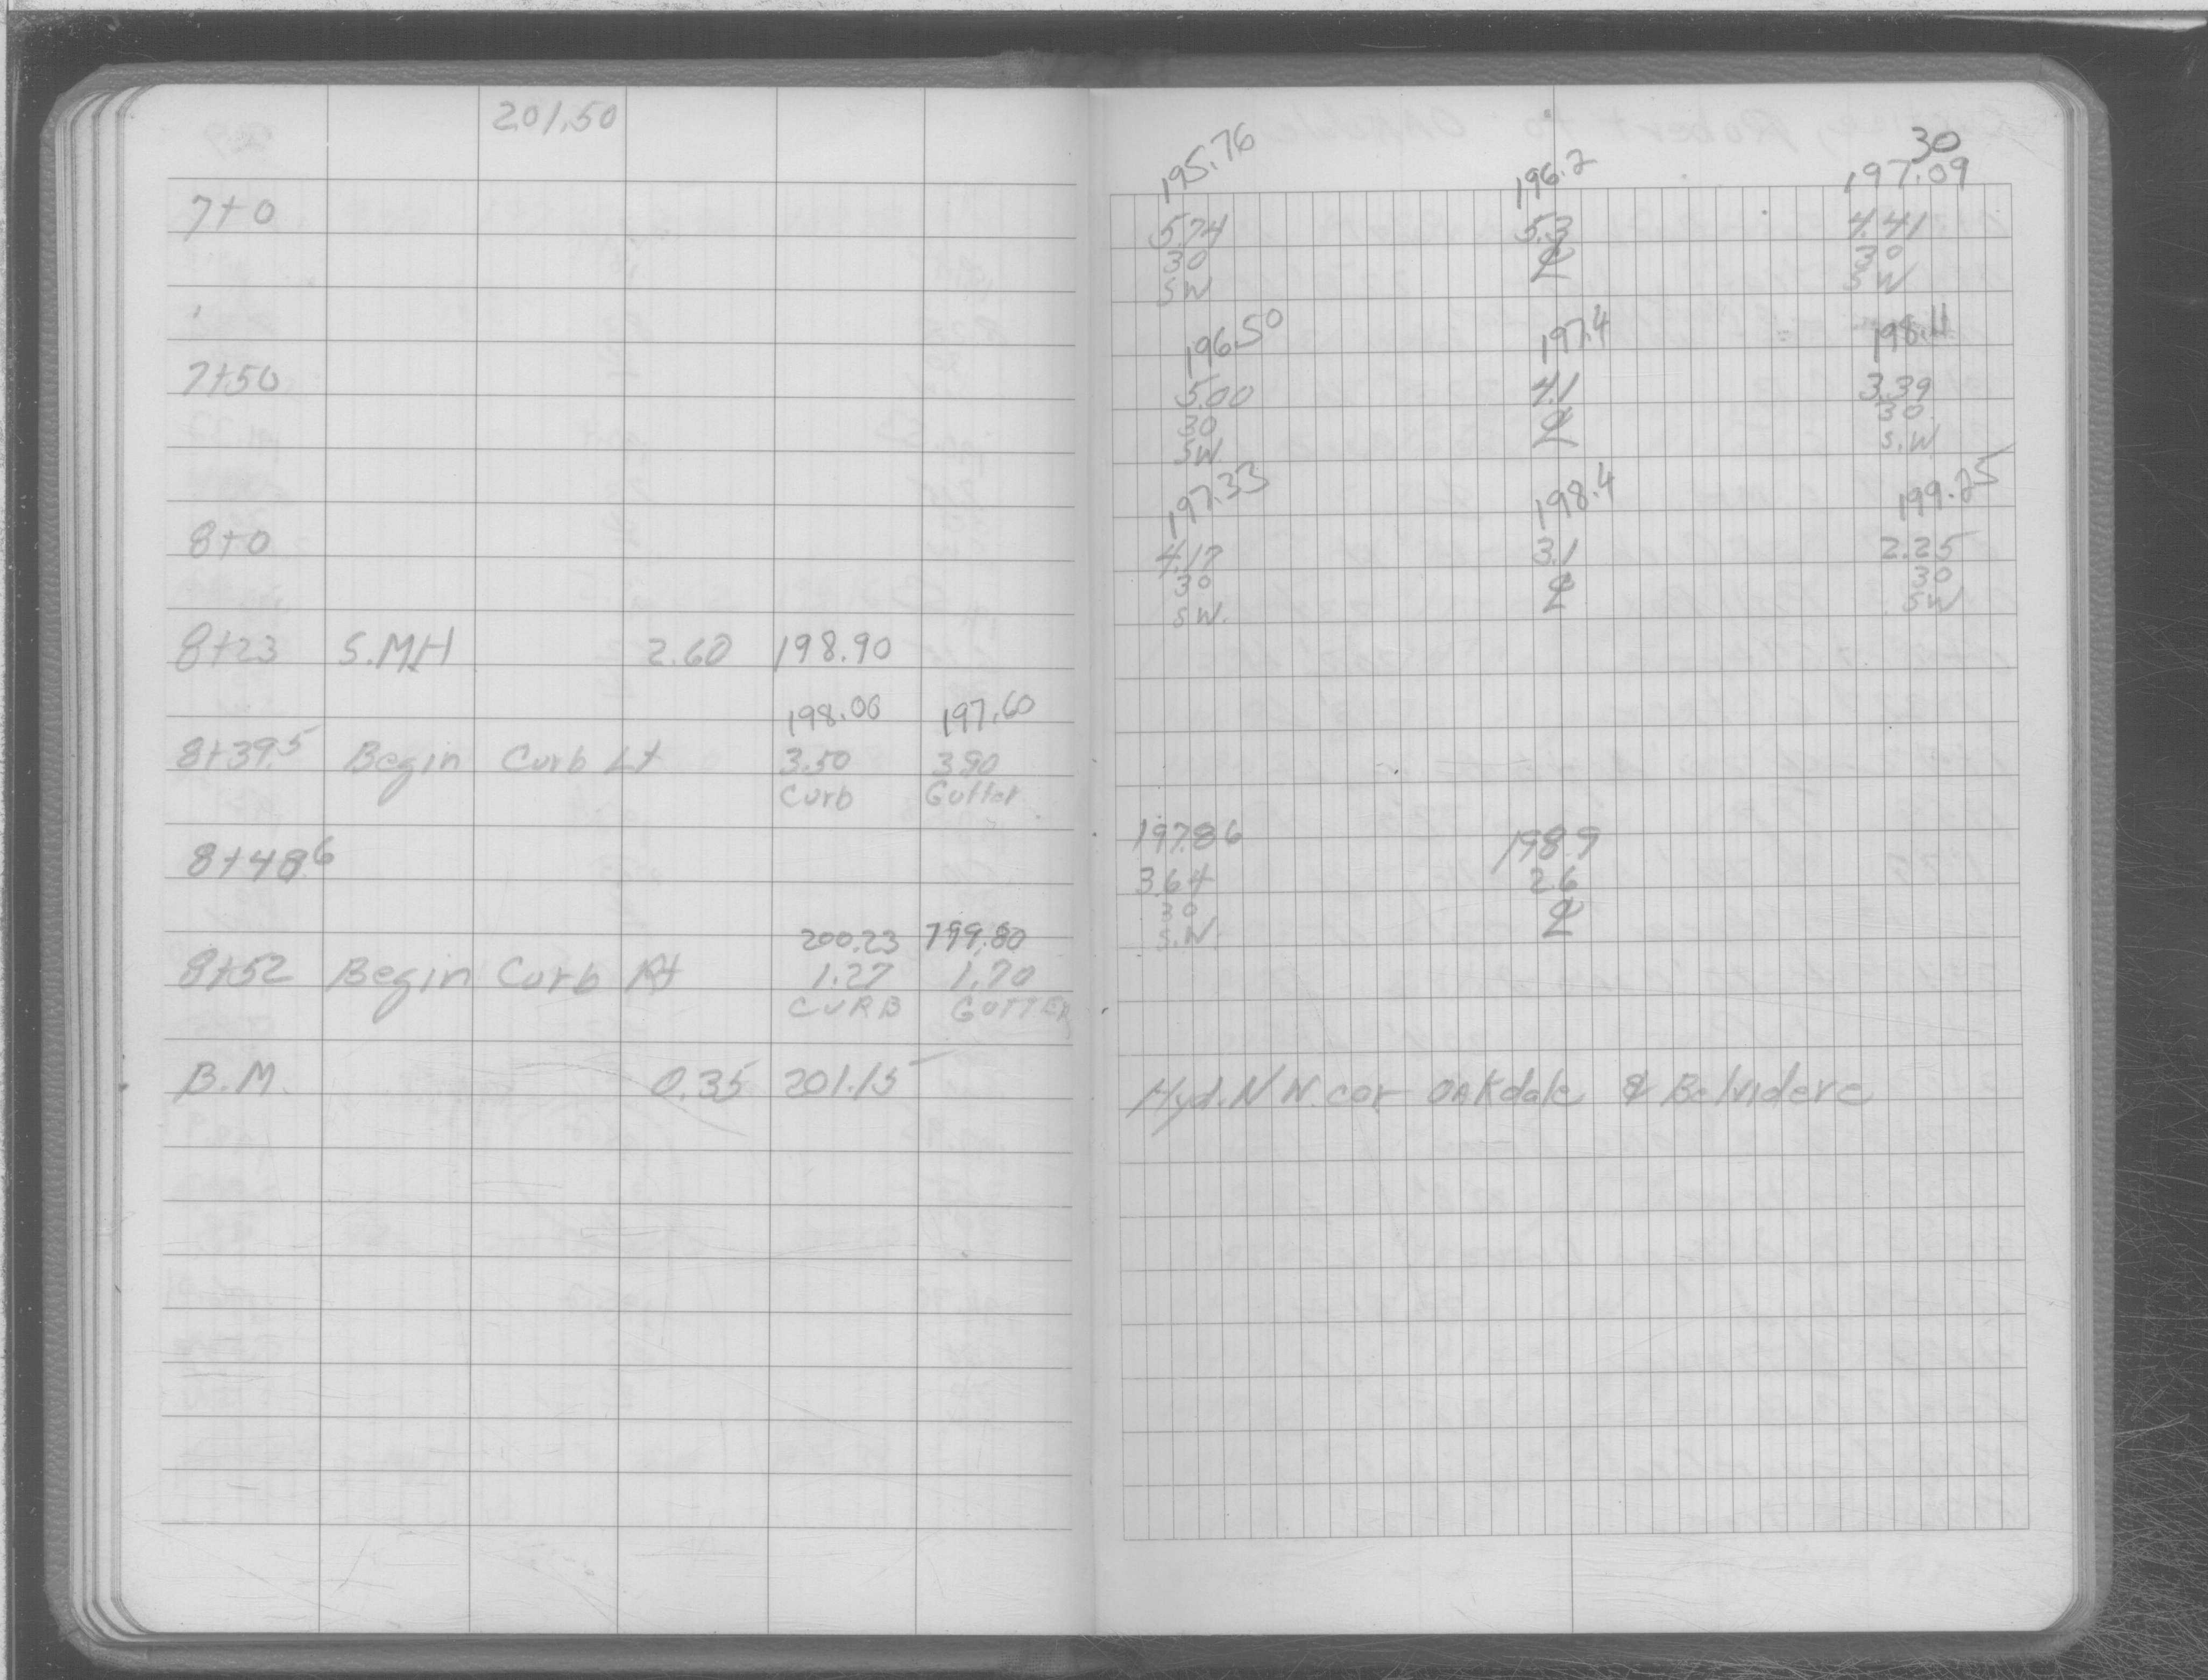 201.50
30
195.76 196.2 197.09
7+0 5.74 5.3 4.41
30 ℄ 30
SW SW
196.50 197.4 198.11
7+50 5.00 4.1 3.39
30 ℄ 30
SW. S.W.
197.33 198.4 199.25
8+0 4.17 3.1 2.25
30 ℄ 30
SW. SW
8+23 S.MH 2.60 198.90
198.00 197.60
8+39.5 Begin Curb Lt 3.50 3.90
Curb Gutter
197.86 198.9
8+48.6 3.64 2.6
30 ℄
S.W.
200.23 199.80
8+52 Begin Curb Rt 1.27 1.70
CURB GUTTER
B.M. 0.35 201.15 Hyd. N W. cor Oakdale & Belvidere